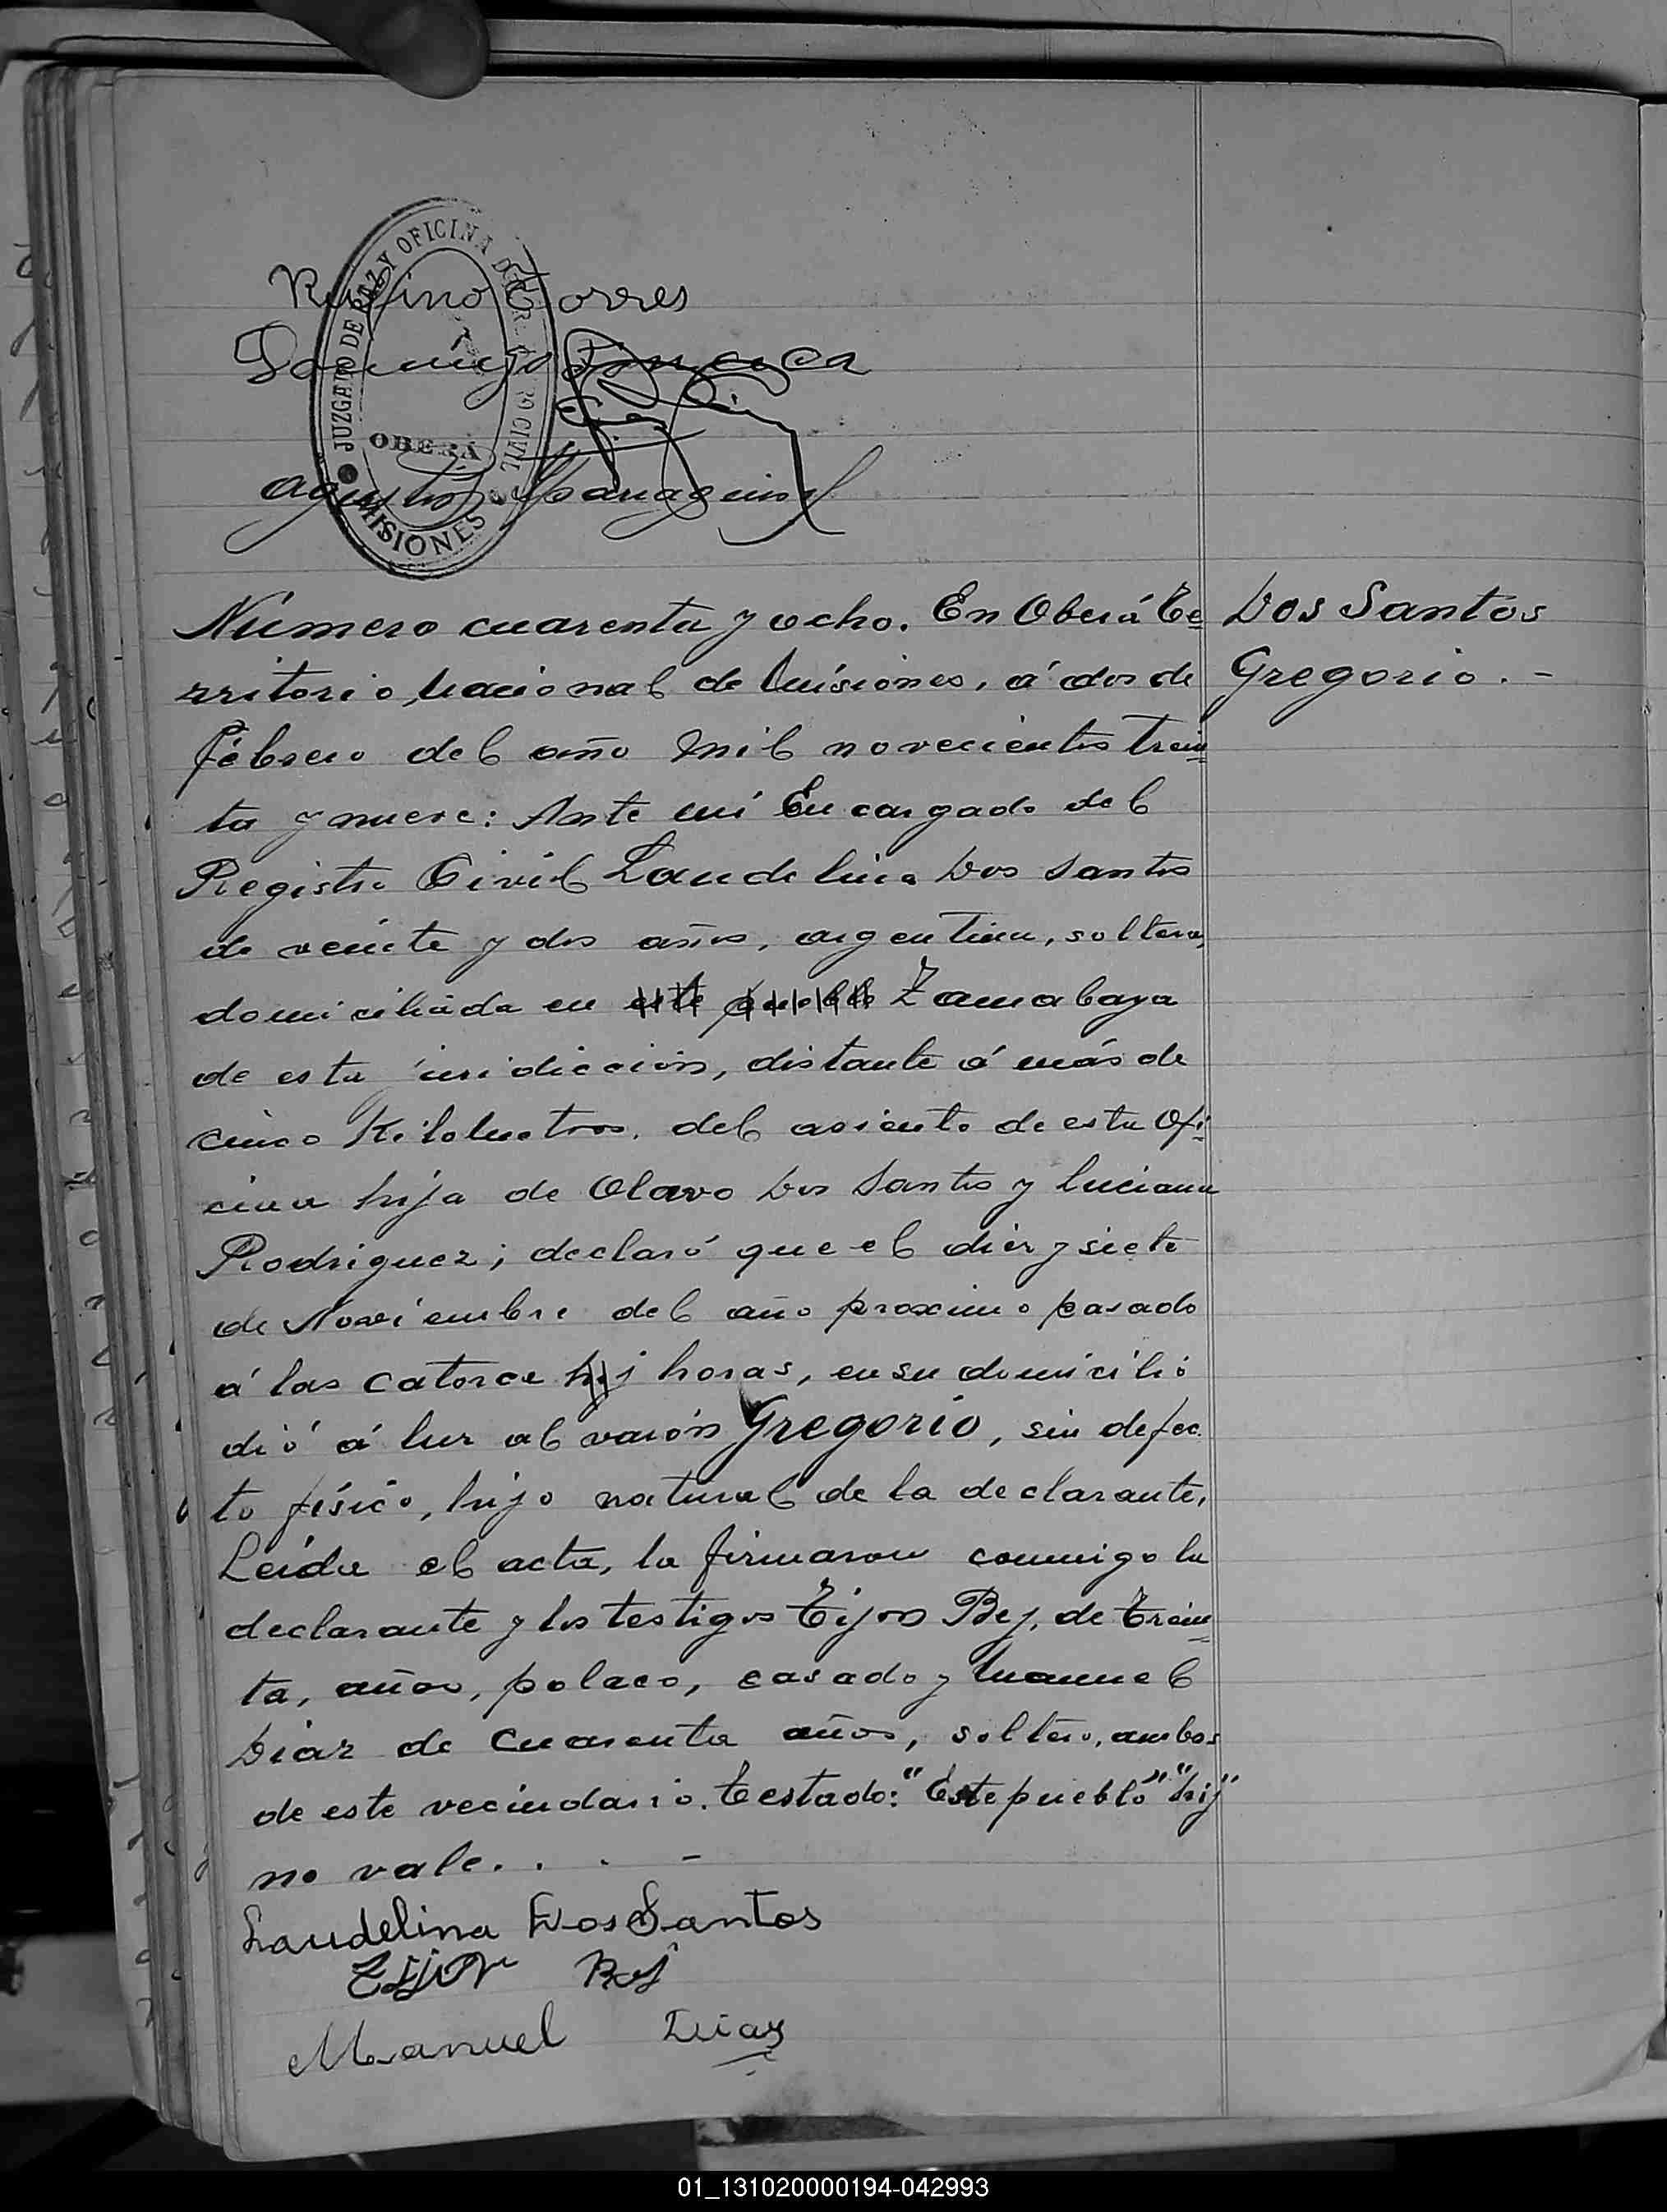 JUZGADO DE PAZ Y OFICINA DEL REGISTRO CIVIL
OBERÁ
MISIONES
Rufino Torres
Domingo
Agustin
Número cuarenta y ocho. En Oberá Te=
Dos Santos
rritorio, Nacional de Misiones, á dos de
Gregorio. -
Febrero del año mil novecientos trein=
ta y nueve: Ante mí Encargado del
Registro Civil Laudelina Dos Santos
de veinte y dos años, argentina, soltera,
domiciliada en este pueblo Zamabaya
de esta juridiccion, distante á más de
cinco Kilometros, del asiento de esta Ofi=
cina hija de Olavo Dos Santos y Luciana
Rodriguez; declaró que el diez y siete
de Noviembre del año proximo pasado
á las catorce hij horas, en su domicilio
dió á luz al varón Gregorio, sin defec
to físico, hijo natural de la declarante.
Leída el acta, la firmaron conmigo la
declarante y los testigos Tijon Bej, de trein=
ta, años, polaco, casado y Manuel
Diaz de cuarenta años, soltero, ambos
de este vecindario. Testado: "Este pueblo" "hij"
no vale. . . -
Laudelina Dos Santos
Manuel Diaz
01_131020000194-042993